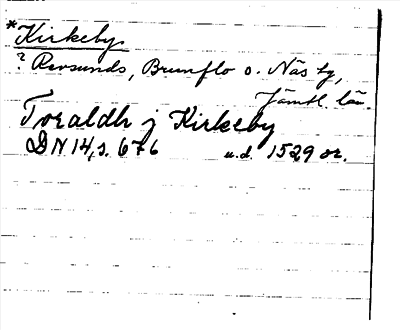 *Kirkeby.
? Revsunds, Brunflo o. Näs tg,
Jämtl. län.
Toraldh j Kirkeby
DN 14, s. 676 u.d. 1529 or.